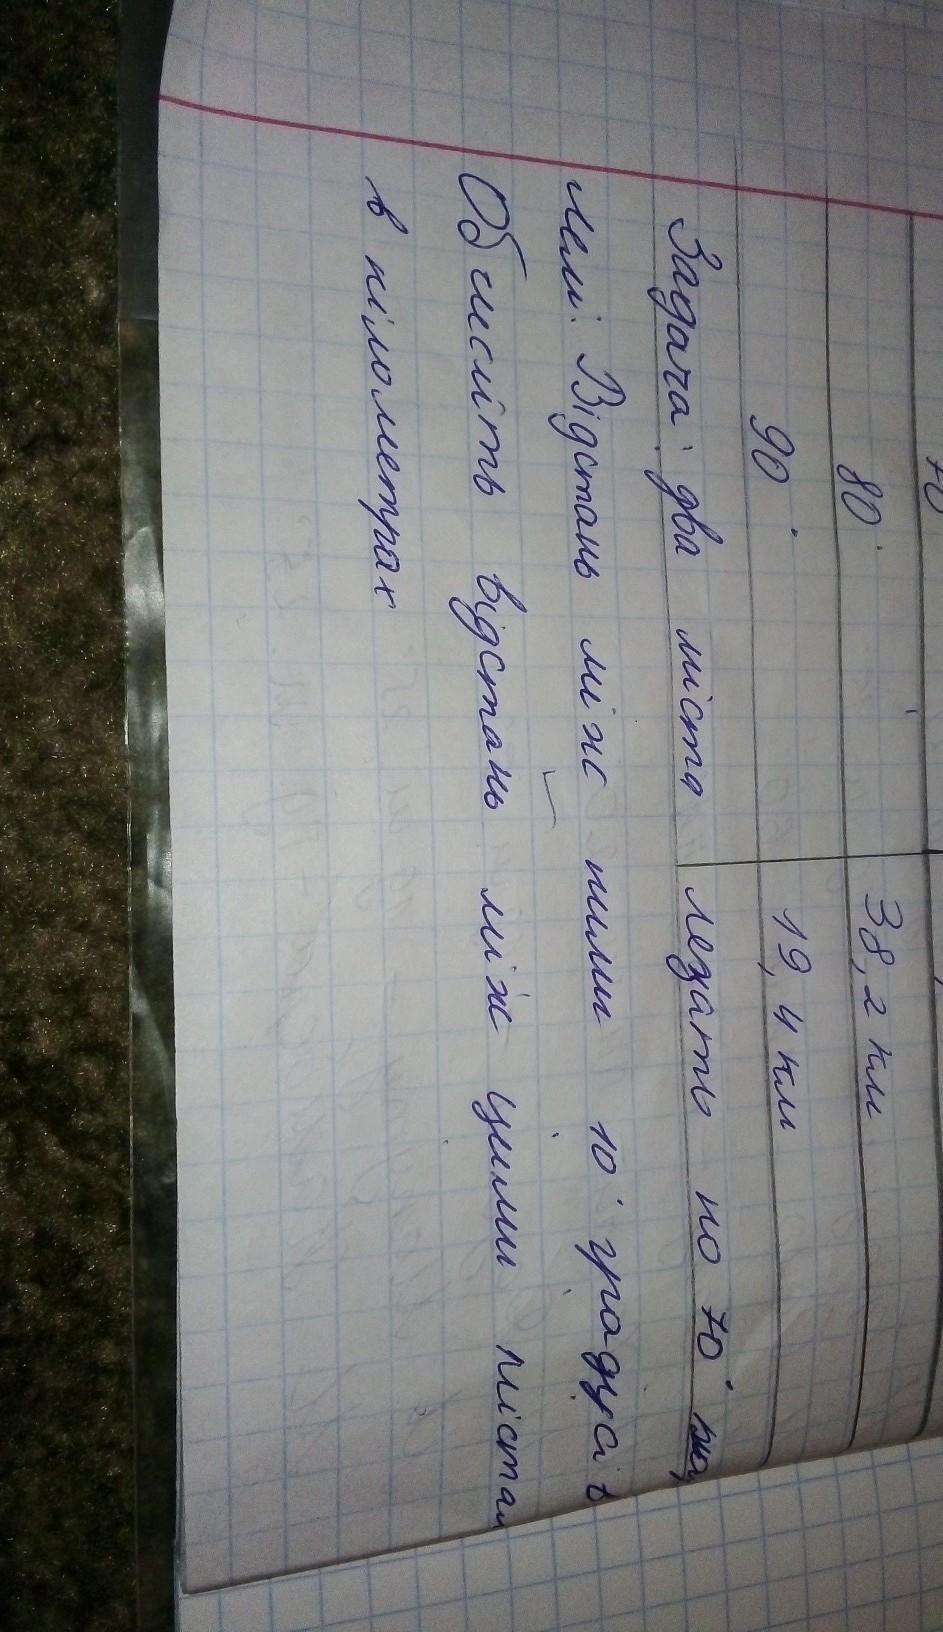 70
80° 38,2 км
90° 19,4 км
Задача: два міста лезать но 70°
лелі. Відстань між ними 10° градусів
Обчисліть відстань між цими містам
в кілометрах